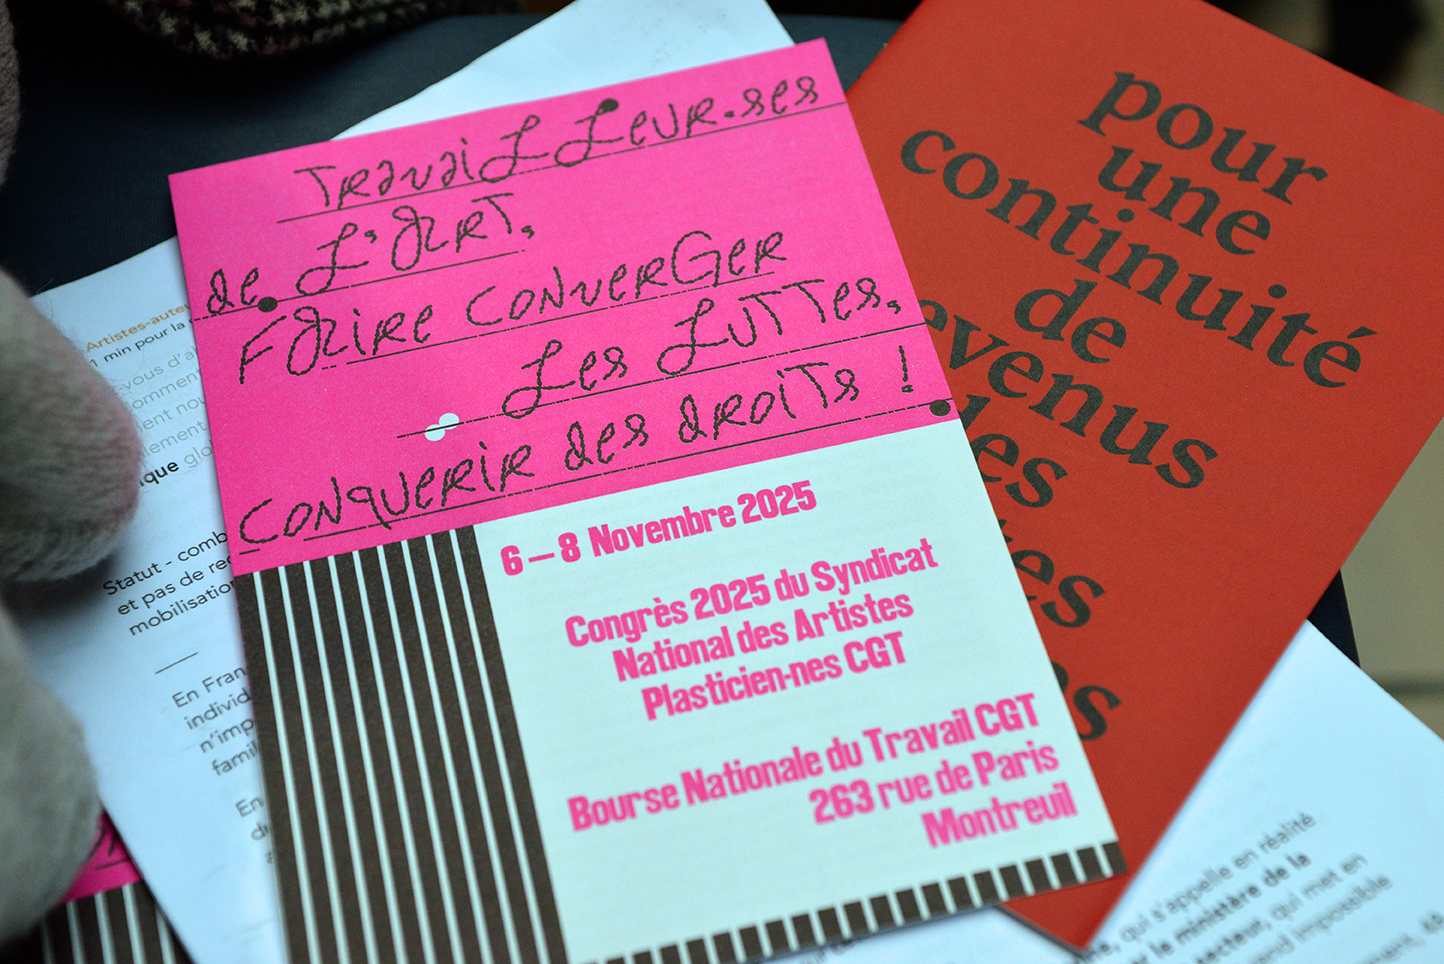 TRavaiLLeuR.ses
de L'ART,
FAIRE CONVERGER
Les LUTTes,
CONQUERIR des dROITS !
6 – 8 Novembre 2025
Congrès 2025 du Syndicat
National des Artistes
Plasticien·nes CGT
Bourse Nationale du Travail CGT
263 rue de Paris
Montreuil
pour
une
continuité
de
evenus
les
es
Artistes-aute
1 min pour la
vous d'a
commen
ent nou
alement
ique glo
Statut - comb
et pas de re
mobilisation
En Fran
individ
n'imp
famil
En
qui s'appelle en réalité
r le ministère de la
secteur, qui met en
rend impossible